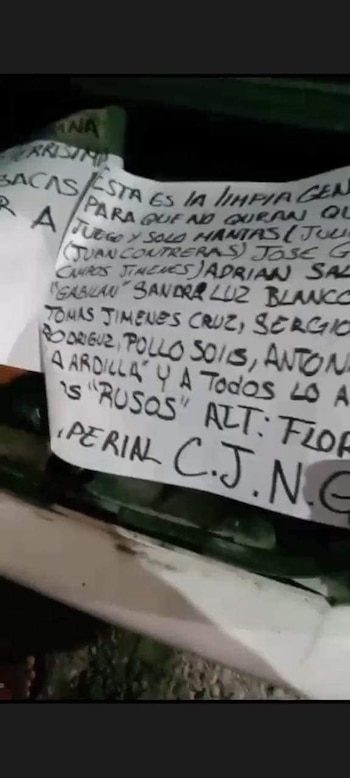 NA
ERRISIMA
BACAS
R A
ESTA ES LA LIMPIA GEN
PARA QUE NO QUIRAN QU
JUEGO Y SOLO MANTAS (JULI
(JUAN CONTRERAS) JOSE G
CAMPOS JIMENES) ADRIAN SAL
"GABILAN" SANDRA LUZ BLANCO
TOMAS JIMENES CRUZ, SERGIO
RODRIGUZ, POLLO SOLIS, ANTON
A ARDILLA" Y A TODOS LO A
OS "RUSOS" ALT: FLOR
PERIAL C.J.N.G